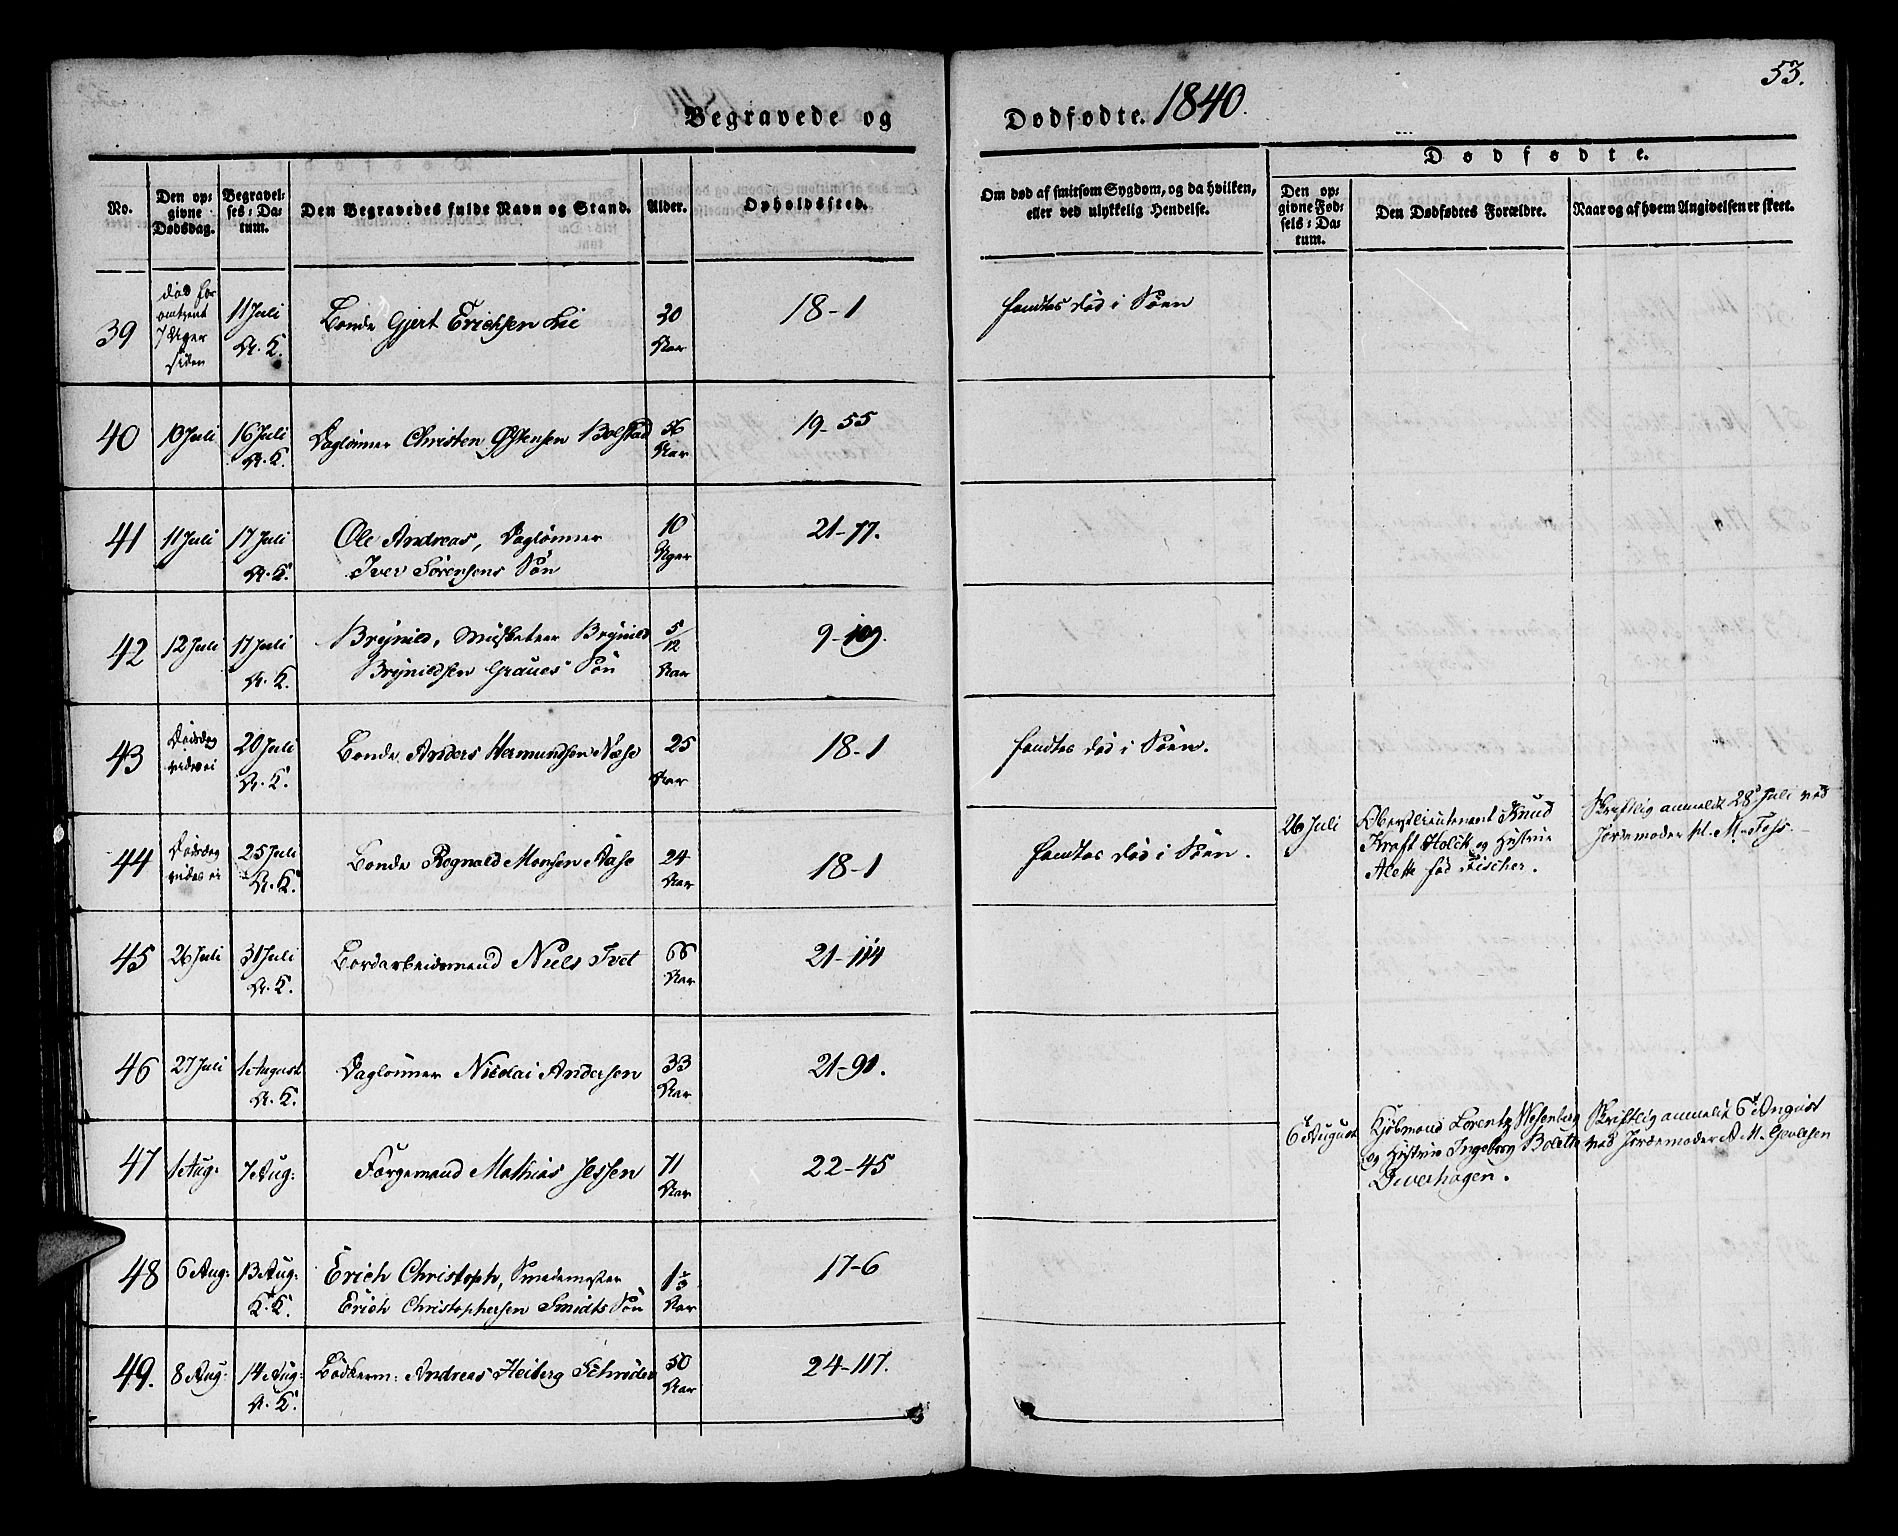 53.
Begravede og Dødfødte. 1840.
No.
Den opgivne Dødsdag.
Begravelses-Datum.
Den Begravedes fulde Navn og Stand.
Alder.
Opholdssted.
Om død af smitsom Sygdom, og da hvilken, eller ved ulykkelig Hendelse.
Dødfødte.
Den opgivne Fødsels-Datum.
Den Dødfødtes Forældre.
Naar og af hvem Angivelsen er skeet.
39 død for omtrent 7 Uger siden 11 Juli A. K. Bonde Gjert Erichsen Lie 30 Aar 18-1 fandtes død i Søen
40 10 Juli 16 Juli A. K. Daglønner Christen Østensen Bolstad 56 Aar 19-55
41 11 Juli 17 Juli A. K. Ole Andreas, Daglønner
Iver Sørensens Søn 10 Uger 21-77.
42 12 Juli 17 Juli A. K. Brynild, Musketeer Brynild
Brynildsen Graues Søn 5/12 Aar 9-109.
43 Dødsdag vides ei 20 Juli A. K. Bonde Anders Hermundsen Næse 25 Aar 18-1 fandtes død i Søen.
44 Dødsdag vides ei 25 Juli A. K. Bonde Regnald Monsen Aase 24 Aar 18-1 fandtes død i Søen.
26 Juli Oberstlieutenant Knud
Kraft Holck og Hustrue
Alette fød Fischer.
Skriftlig anmeldt 28d Juli ved
Jordemoder M. Foss.
45 26 Juli 31 Juli A. K. Bordarbeidsmand Niels Tvet 66 Aar 21-114
46 27 Juli 1 August A. K. Daglønner Nicolai Andersen 33 Aar 21-91.
47 1 Aug: 7 Aug: Færgemand Mathias Jessen 71 Aar 22-45
6t August Kjøbmand Lorentz Wesenberg
og Hustrue Ingeborg Bolette
Dwerhagen.
Skriftlig anmeldt 6t August
ved Jordemoder A. M.
48 6 Aug: 13 Aug: K. K. Erich Christoph, Smedemester
Erich Christophersen Smidts Søn Aar 17-6
49. 8 Aug: 14 Aug: A. K. Bødkerm: Andreas Heiberg Schrøder 50 Aar 24-117.